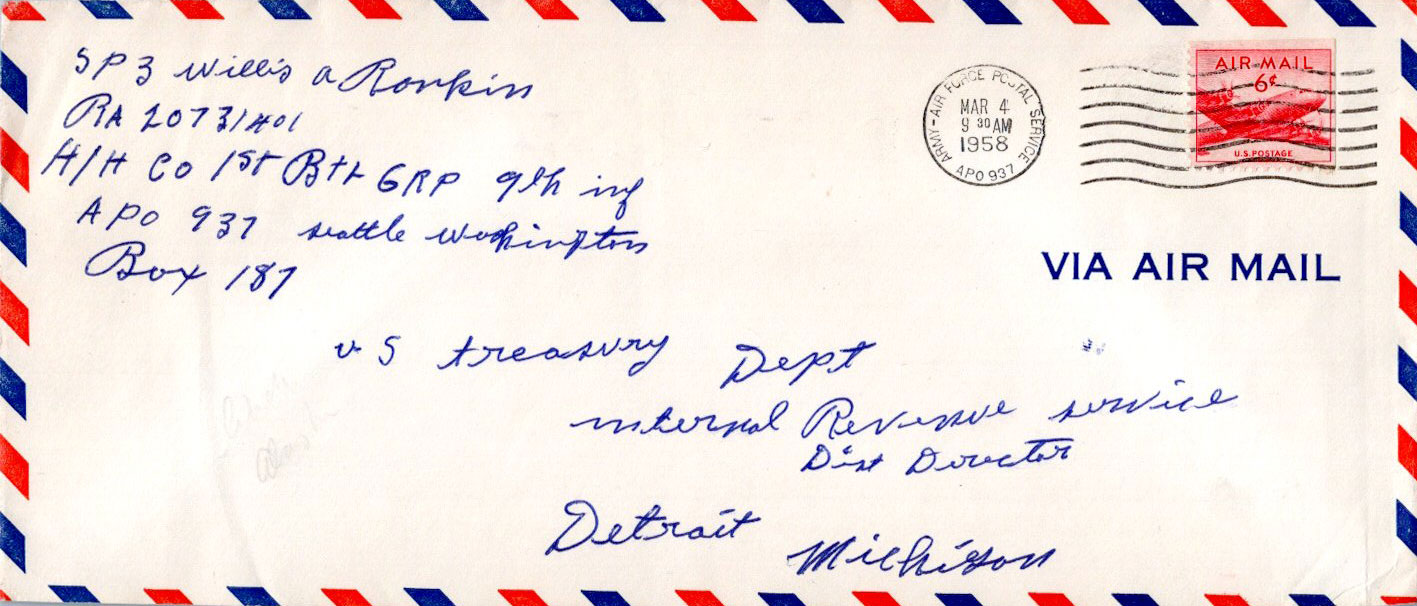 SP3 Willis A Rankin
RA 20731401
H/H Co 1st Btl GRP 9th inf
APO 937 seattle washington
Box 187
ARMY-AIR FORCE POSTAL SERVICE
MAR 4
9 30 AM
1958
APO 937
AIR MAIL
6¢
U.S. POSTAGE
VIA AIR MAIL
U S treasury Dept
internal Revenue service
Dist Director
Detroit Michigan